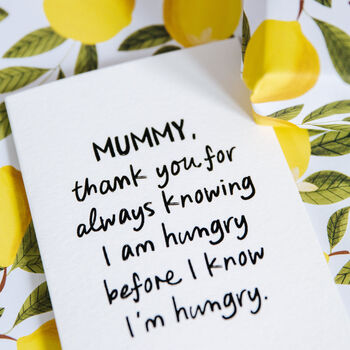 MUMMY,
thank you for
always knowing
I am hungry
before I know
I'm hungry.